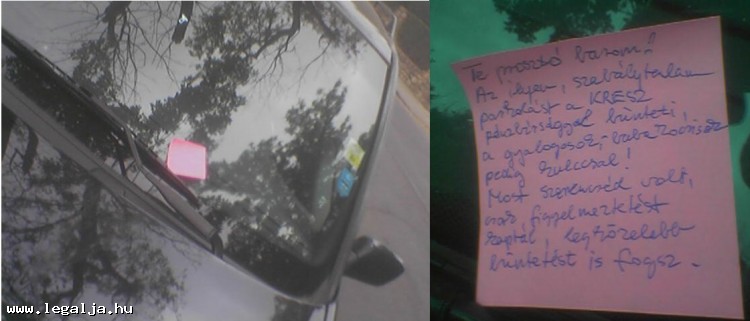 Te prosztó barom!
Az ilyen, szabálytalan
parkolást a KRESZ
pénzbírsággal bünteti,
a gyalogosok, babakocsisok
pedig kulccsal!
Most szerencséd volt,
csak figyelmeztetést
kaptál, legközelebb
büntetést is fogsz.
www.legalja.hu